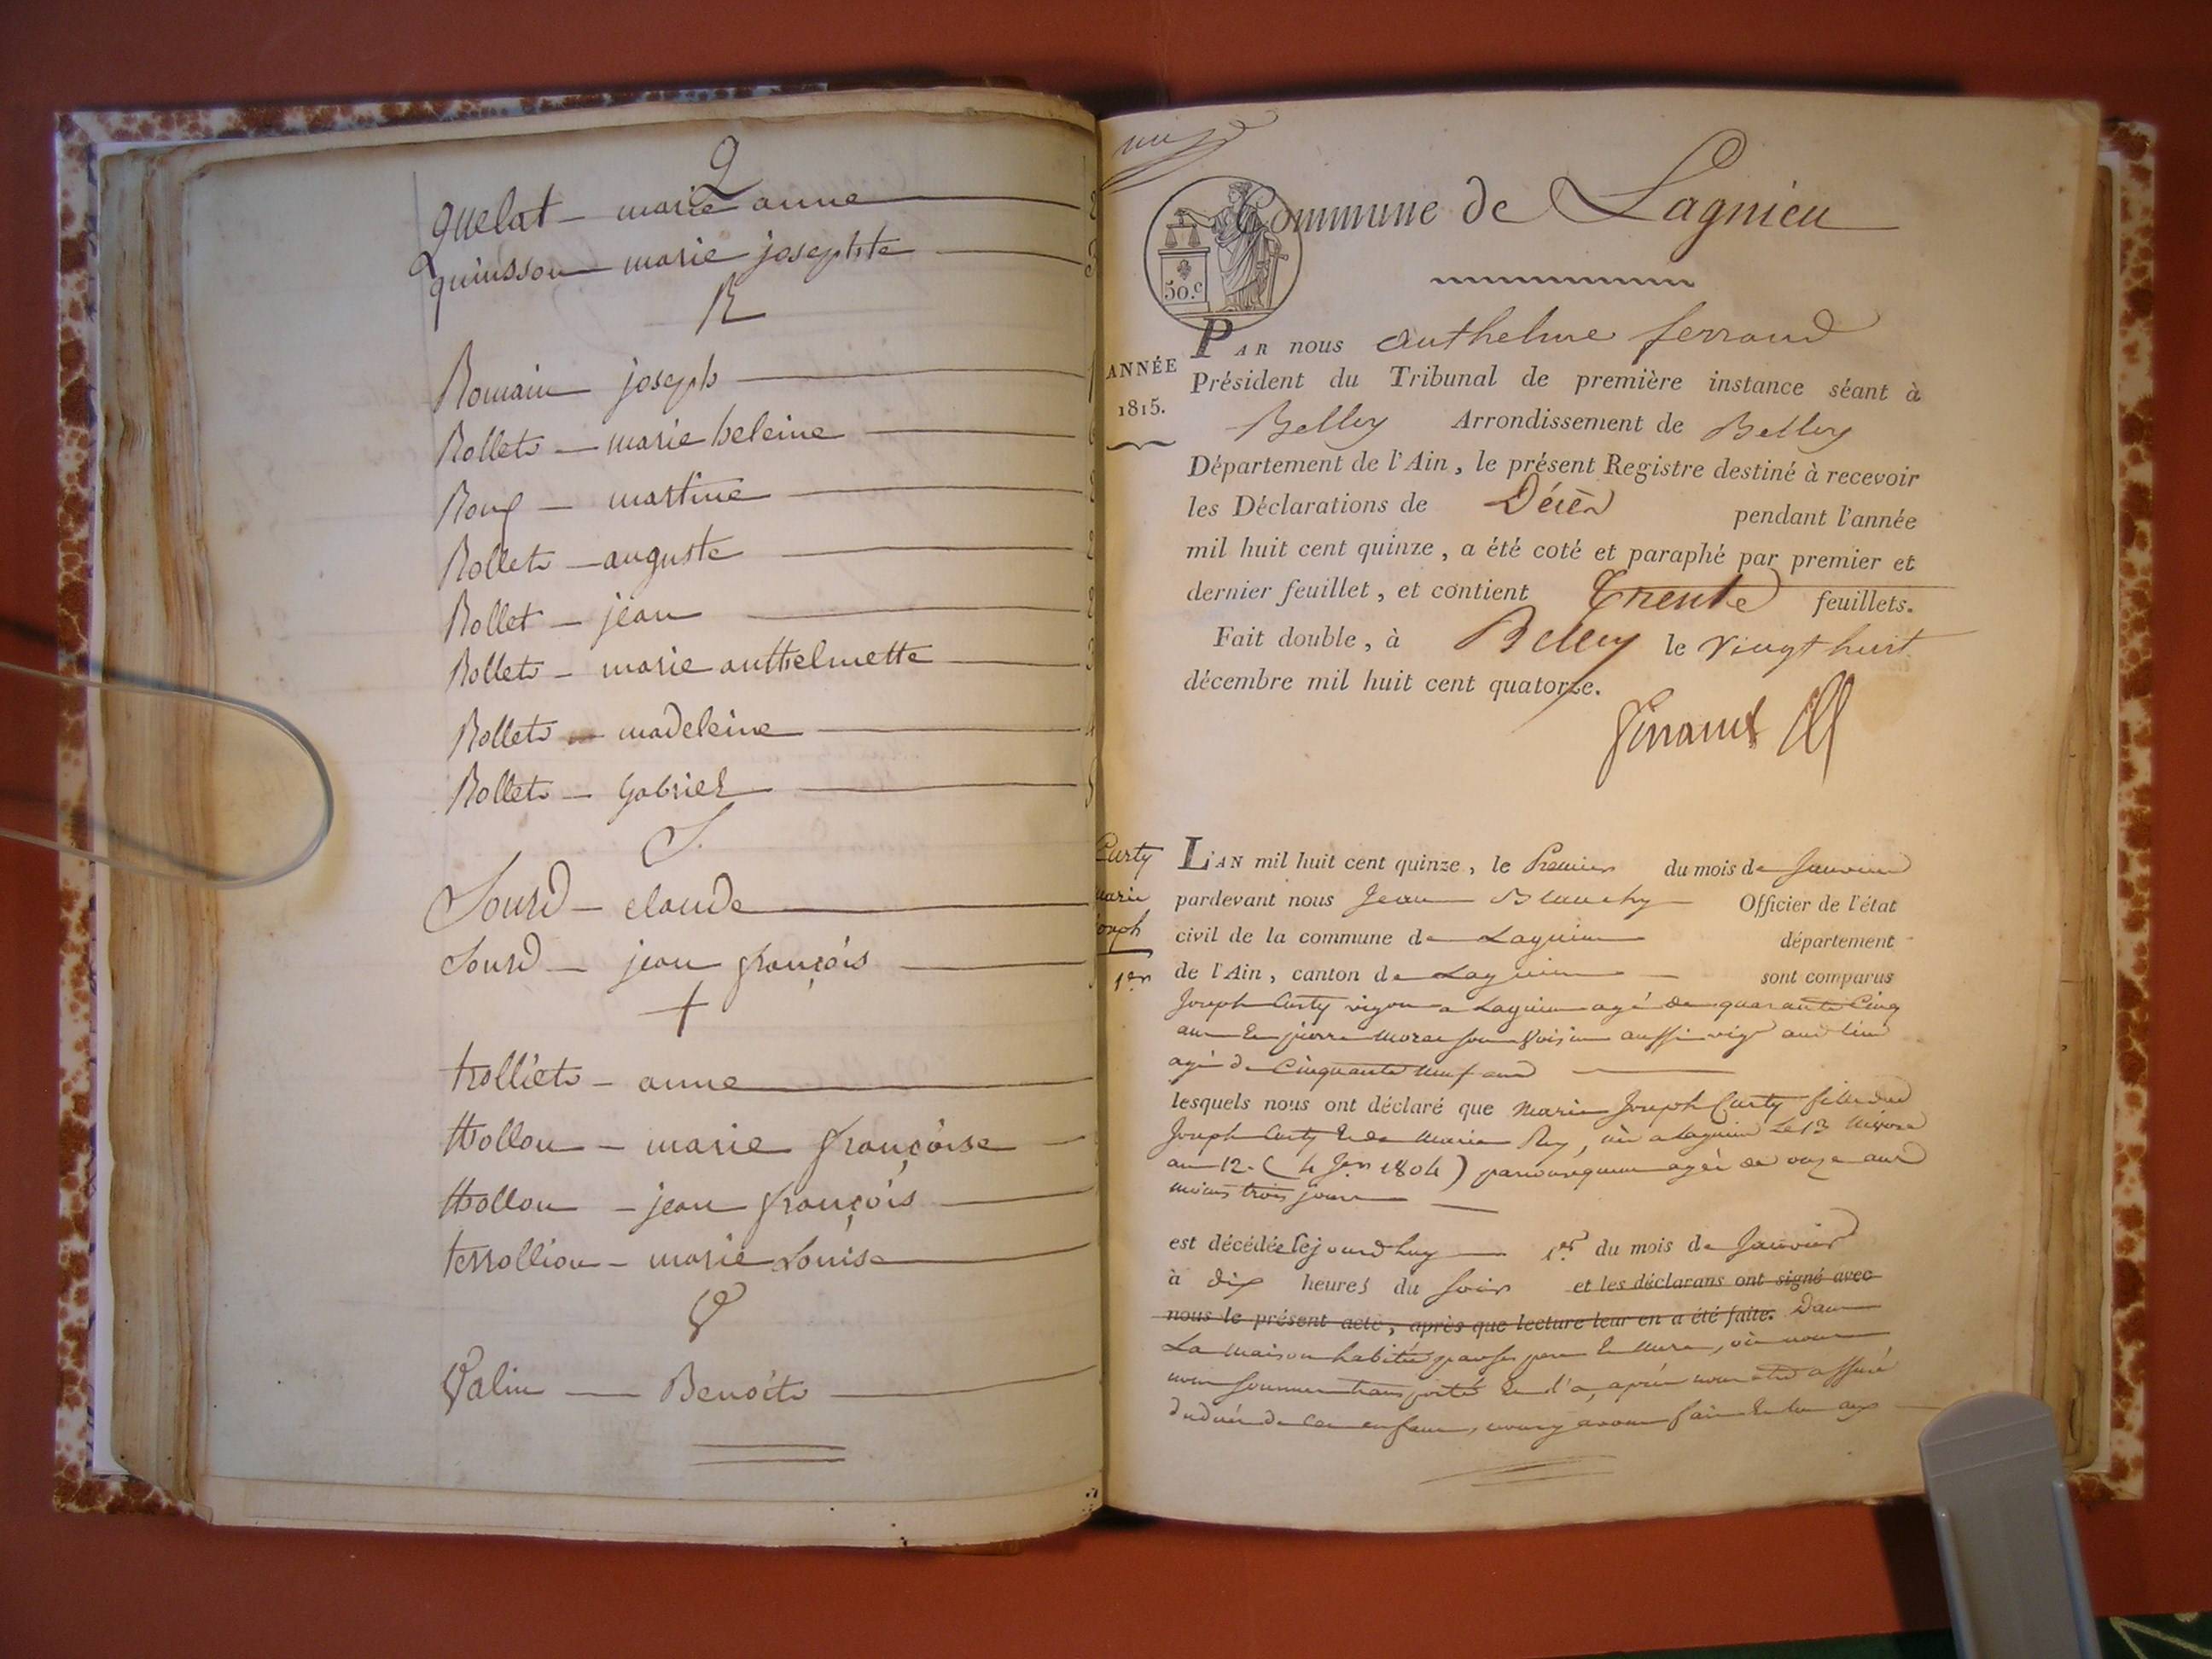 Q
quelat - marie anne
quinsson marie josephte
R
Romain joseph
Rollet - marie heleine
Roux - martine
Rollet - auguste
Rollet - jean
Rollet - marie anthelmette
Rollet - madeleine
Rollet - gabriel
S.
Sourd - claude
Sourd - jean françois
t
trolliet - anne
trollou - marie françoise
trollou - jean françois
terrolliou - marie Louise
V
Valin - Benoit
Commune de Lagnieu
50.c
PAR nous anthelme ferrand
ANNÉE
1815.
Président du Tribunal de première instance séant à
Belley Arrondissement de Belley
Département de l'Ain, le présent Registre destiné à recevoir
les Déclarations de Décès pendant l'année
mil huit cent quinze, a été coté et paraphé par premier et
dernier feuillet, et contient Trente feuillets.
Fait double, à Belley le vingt huit
décembre mil huit cent quatorze.
Curty
marie
joseph
1er
L'AN mil huit cent quinze, le Premier du mois de Janvier
pardevant nous Jean Blanchy Officier de l'état
civil de la commune de Lagnieu département
de l'Ain, canton de Lagnieu sont comparus
Joseph Curty vigon a Lagnieu agé de quarante Cinq
ans Et pierre morae son Voisin aussi vig aud lieu
agé de Cinquante neuf ans
lesquels nous ont déclaré que Marie Joseph Curty fille dud
Joseph Curty Et de Marie Rey, née a Lagnieu Le 13 Nivose
an 12. (4 Jer 1804) par conséquent agée de onze ans
moins trois jours
est décédée cejourd'huy 1er du mois de Janvier
à dix heures du soir et les déclarans ont signé avec
nous le présent acte, après que lecture leur en a été faite. Dans
La maison habitée par ses pere Et mere, où nous
nous sommes transporté Et l'a, après nous etre assuré
du decès de cet enfant, nous